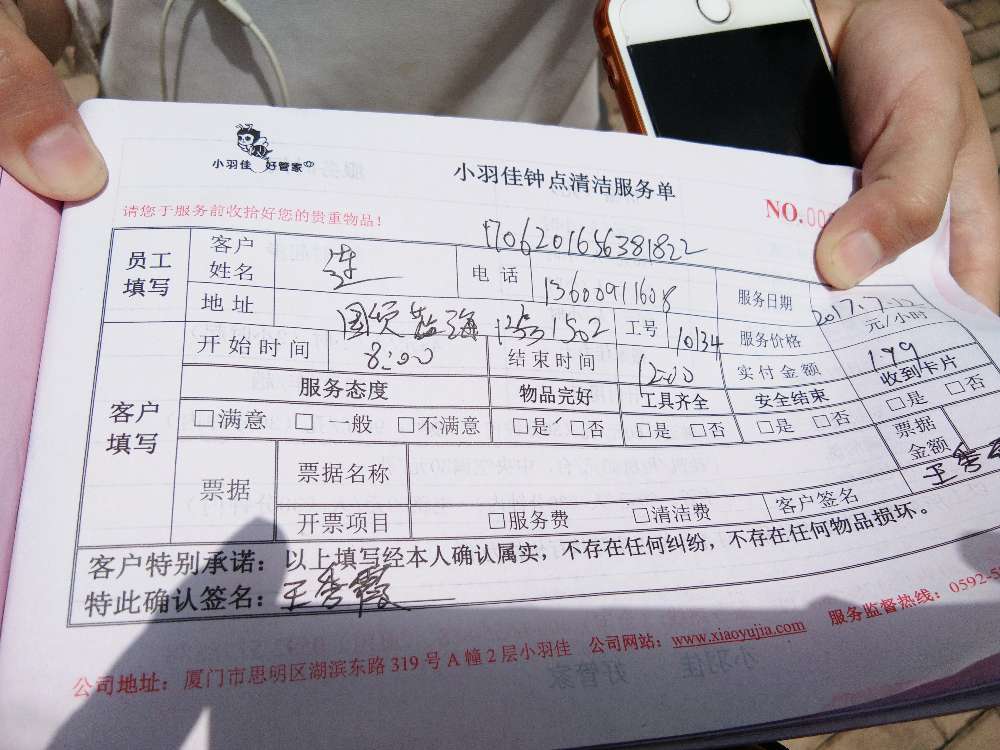 小羽佳 好管家
小羽佳钟点清洁服务单
NO.00
请您于服务前收拾好您的贵重物品！
1706201656381822
员工填写 客户姓名 电话 13600911608 服务日期 2017.7.12
地址 1502 工号 10134 服务价格 元/小时
开始时间 8:00 结束时间 12:00 实付金额 199
客户填写 服务态度 物品完好 工具齐全 安全结束 收到卡片
□满意 □一般 □不满意 □是 □否 □是 □否 □是 □否 □是 □否
票据 票据名称 票据金额
开票项目 □服务费 □清洁费 客户签名 王秀
客户特别承诺：以上填写经本人确认属实，不存在任何纠纷，不存在任何物品损坏。
特此确认签名：王秀霞
公司地址：厦门市思明区湖滨东路319号A幢2层小羽佳 公司网站：www.xiaoyujia.com 服务监督热线：0592-5